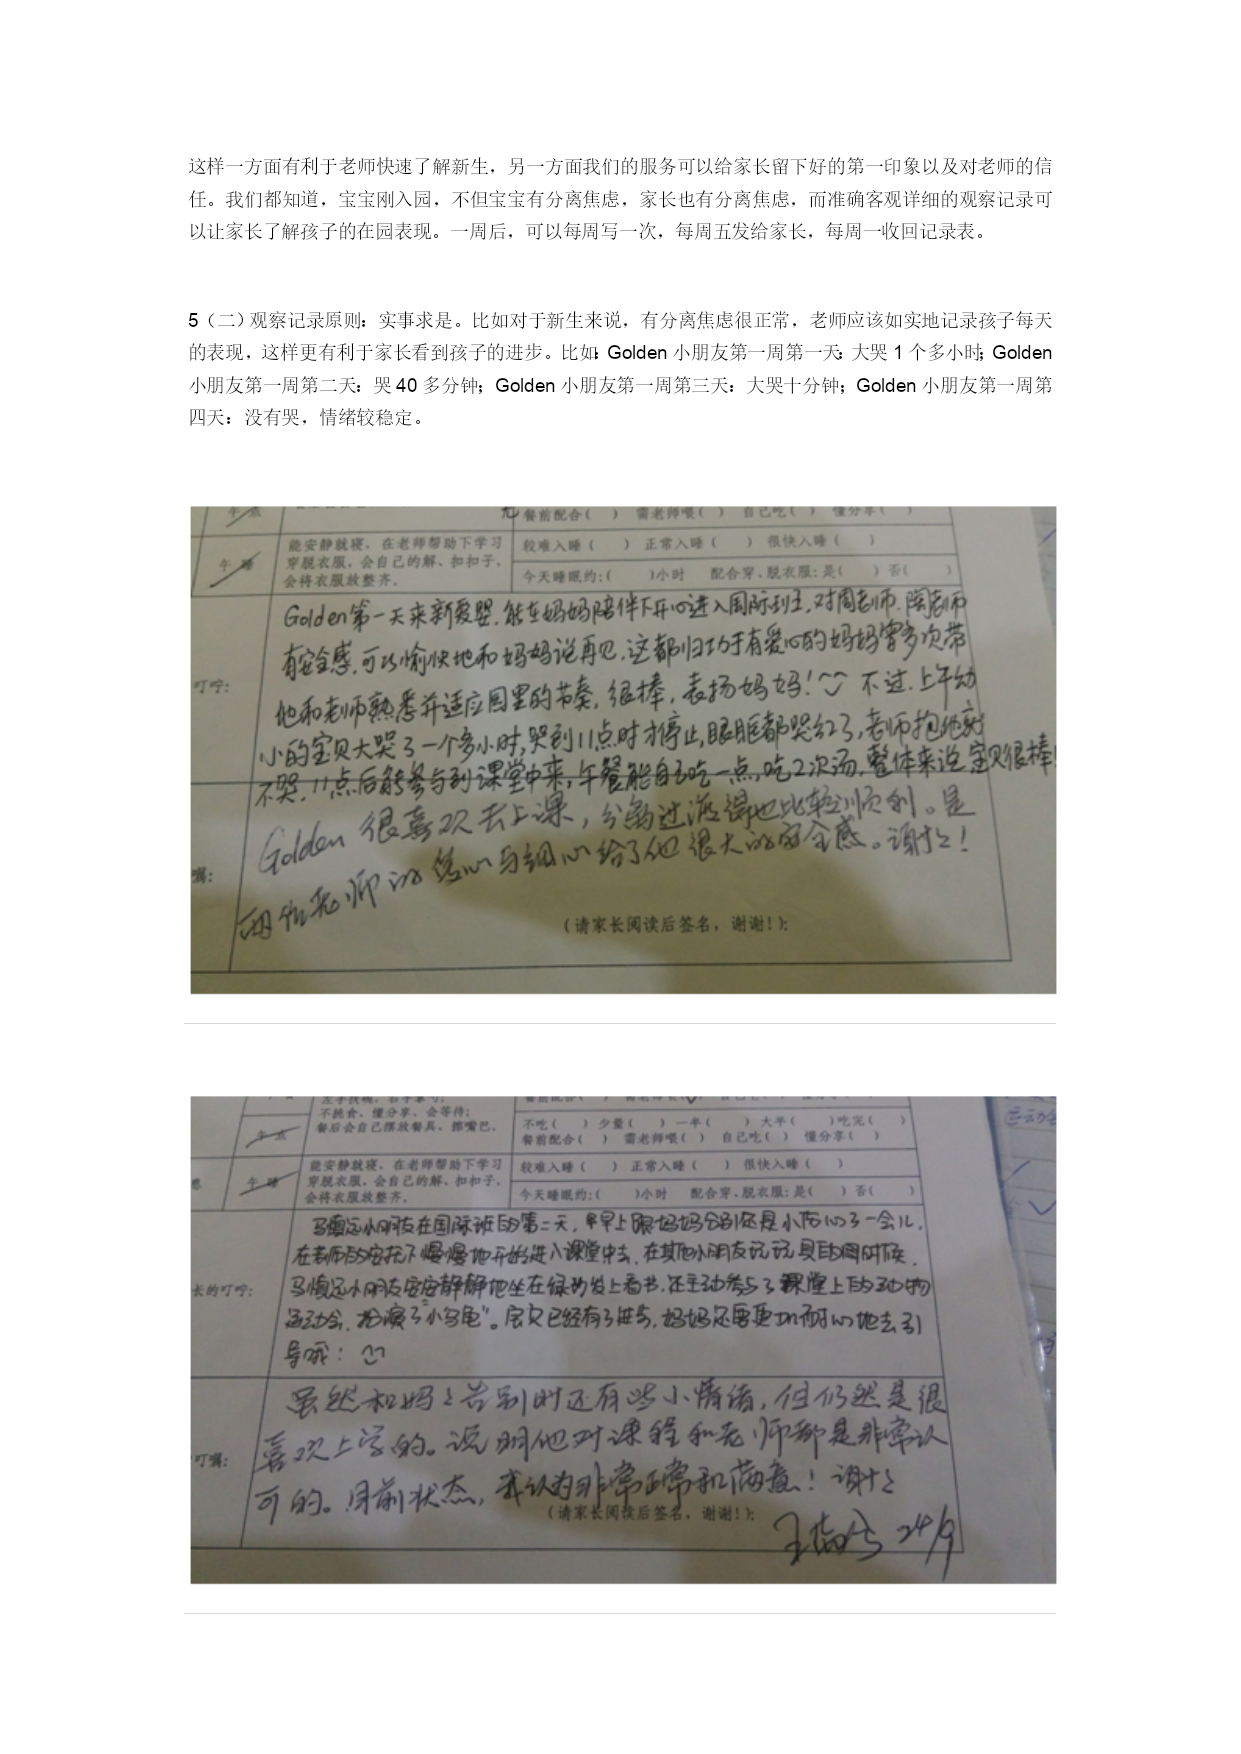 这样一方面有利于老师快速了解新生，另一方面我们的服务可以给家长留下好的第一印象以及对老师的信
任。我们都知道，宝宝刚入园，不但宝宝有分离焦虑，家长也有分离焦虑，而准确客观详细的观察记录可
以让家长了解孩子的在园表现。一周后，可以每周写一次，每周五发给家长，每周一收回记录表。
5（二）观察记录原则：实事求是。比如对于新生来说，有分离焦虑很正常，老师应该如实地记录孩子每天
的表现，这样更有利于家长看到孩子的进步。比如：Golden 小朋友第一周第一天：大哭 1 个多小时；Golden
小朋友第一周第二天：哭 40 多分钟；Golden 小朋友第一周第三天：大哭十分钟；Golden 小朋友第一周第
四天：没有哭，情绪较稳定。
午点 餐前配合( ) 需老师喂( ) 自己吃( ) 懂分享( )
午睡 能安静就寝，在老师帮助下学习 较难入睡( ) 正常入睡( ) 很快入睡( )
穿脱衣服，会自己的解、扣扣子，
会将衣服放整齐。 今天睡眠约:( )小时 配合穿、脱衣服:是( ) 否( )
Golden第一天来新爱婴，能在妈妈陪伴下开心进入国际班，对周老师、陶老师
有安全感，可以愉快地和妈妈说再见，这都归功于有爱心的妈妈多次带
叮咛:
他和老师熟悉并适应园里的节奏，很棒，表扬妈妈！不过，上午幼
小的宝贝大哭了一个多小时，哭到11点时才停止，眼眶都哭红了，老师抱他就
不哭，11点后能参与到课堂中来，午餐能自己吃一点，吃2次汤，整体来说宝贝很棒！
Golden 很喜欢去上课，分离过渡得也比较顺利。是
嘱:
两位老师的信心与细心给了他很大的安全感。谢谢！
(请家长阅读后签名，谢谢！):
不挑食、懂分享、会等待;
餐后会自己摆放餐具、擦嘴巴。
午点 不吃( ) 少量( ) 一半( ) 大半( ) 吃完( )
餐前配合( ) 需老师喂( ) 自己吃( ) 懂分享( )
午睡 能安静就寝，在老师帮助下学习 较难入睡( ) 正常入睡( ) 很快入睡( )
穿脱衣服，会自己的解、扣扣子，
会将衣服放整齐。 今天睡眠约:( )小时 配合穿、脱衣服:是( ) 否( )
小朋友在国际班的第二天，早早上跟妈妈分别还是小伤心了一会儿，
在老师的安抚下慢慢地开始进入课堂中去，在其他小朋友玩玩具的同时候，
长的叮咛:
小朋友安安静静地坐在绿沙发上看书，还主动参与了课堂上的动物
运动会，扮演了“小乌龟”。宝贝已经有了进步，妈妈还需要更加耐心地去引
导哦！
虽然和妈妈告别时还有些小情绪，但仍然是很
喜欢上学的。说明他对课程和老师都是非常认
叮嘱:
可的。目前状态，我认为非常正常和满意！谢谢
(请家长阅读后签名，谢谢！):
24/9